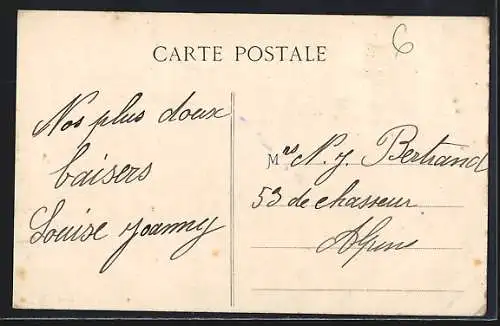 CARTE POSTALE
6
Nos plus doux
baisers
Louise Joanny
Mrs N. J. Bertrand
53 de chasseur
Alpins